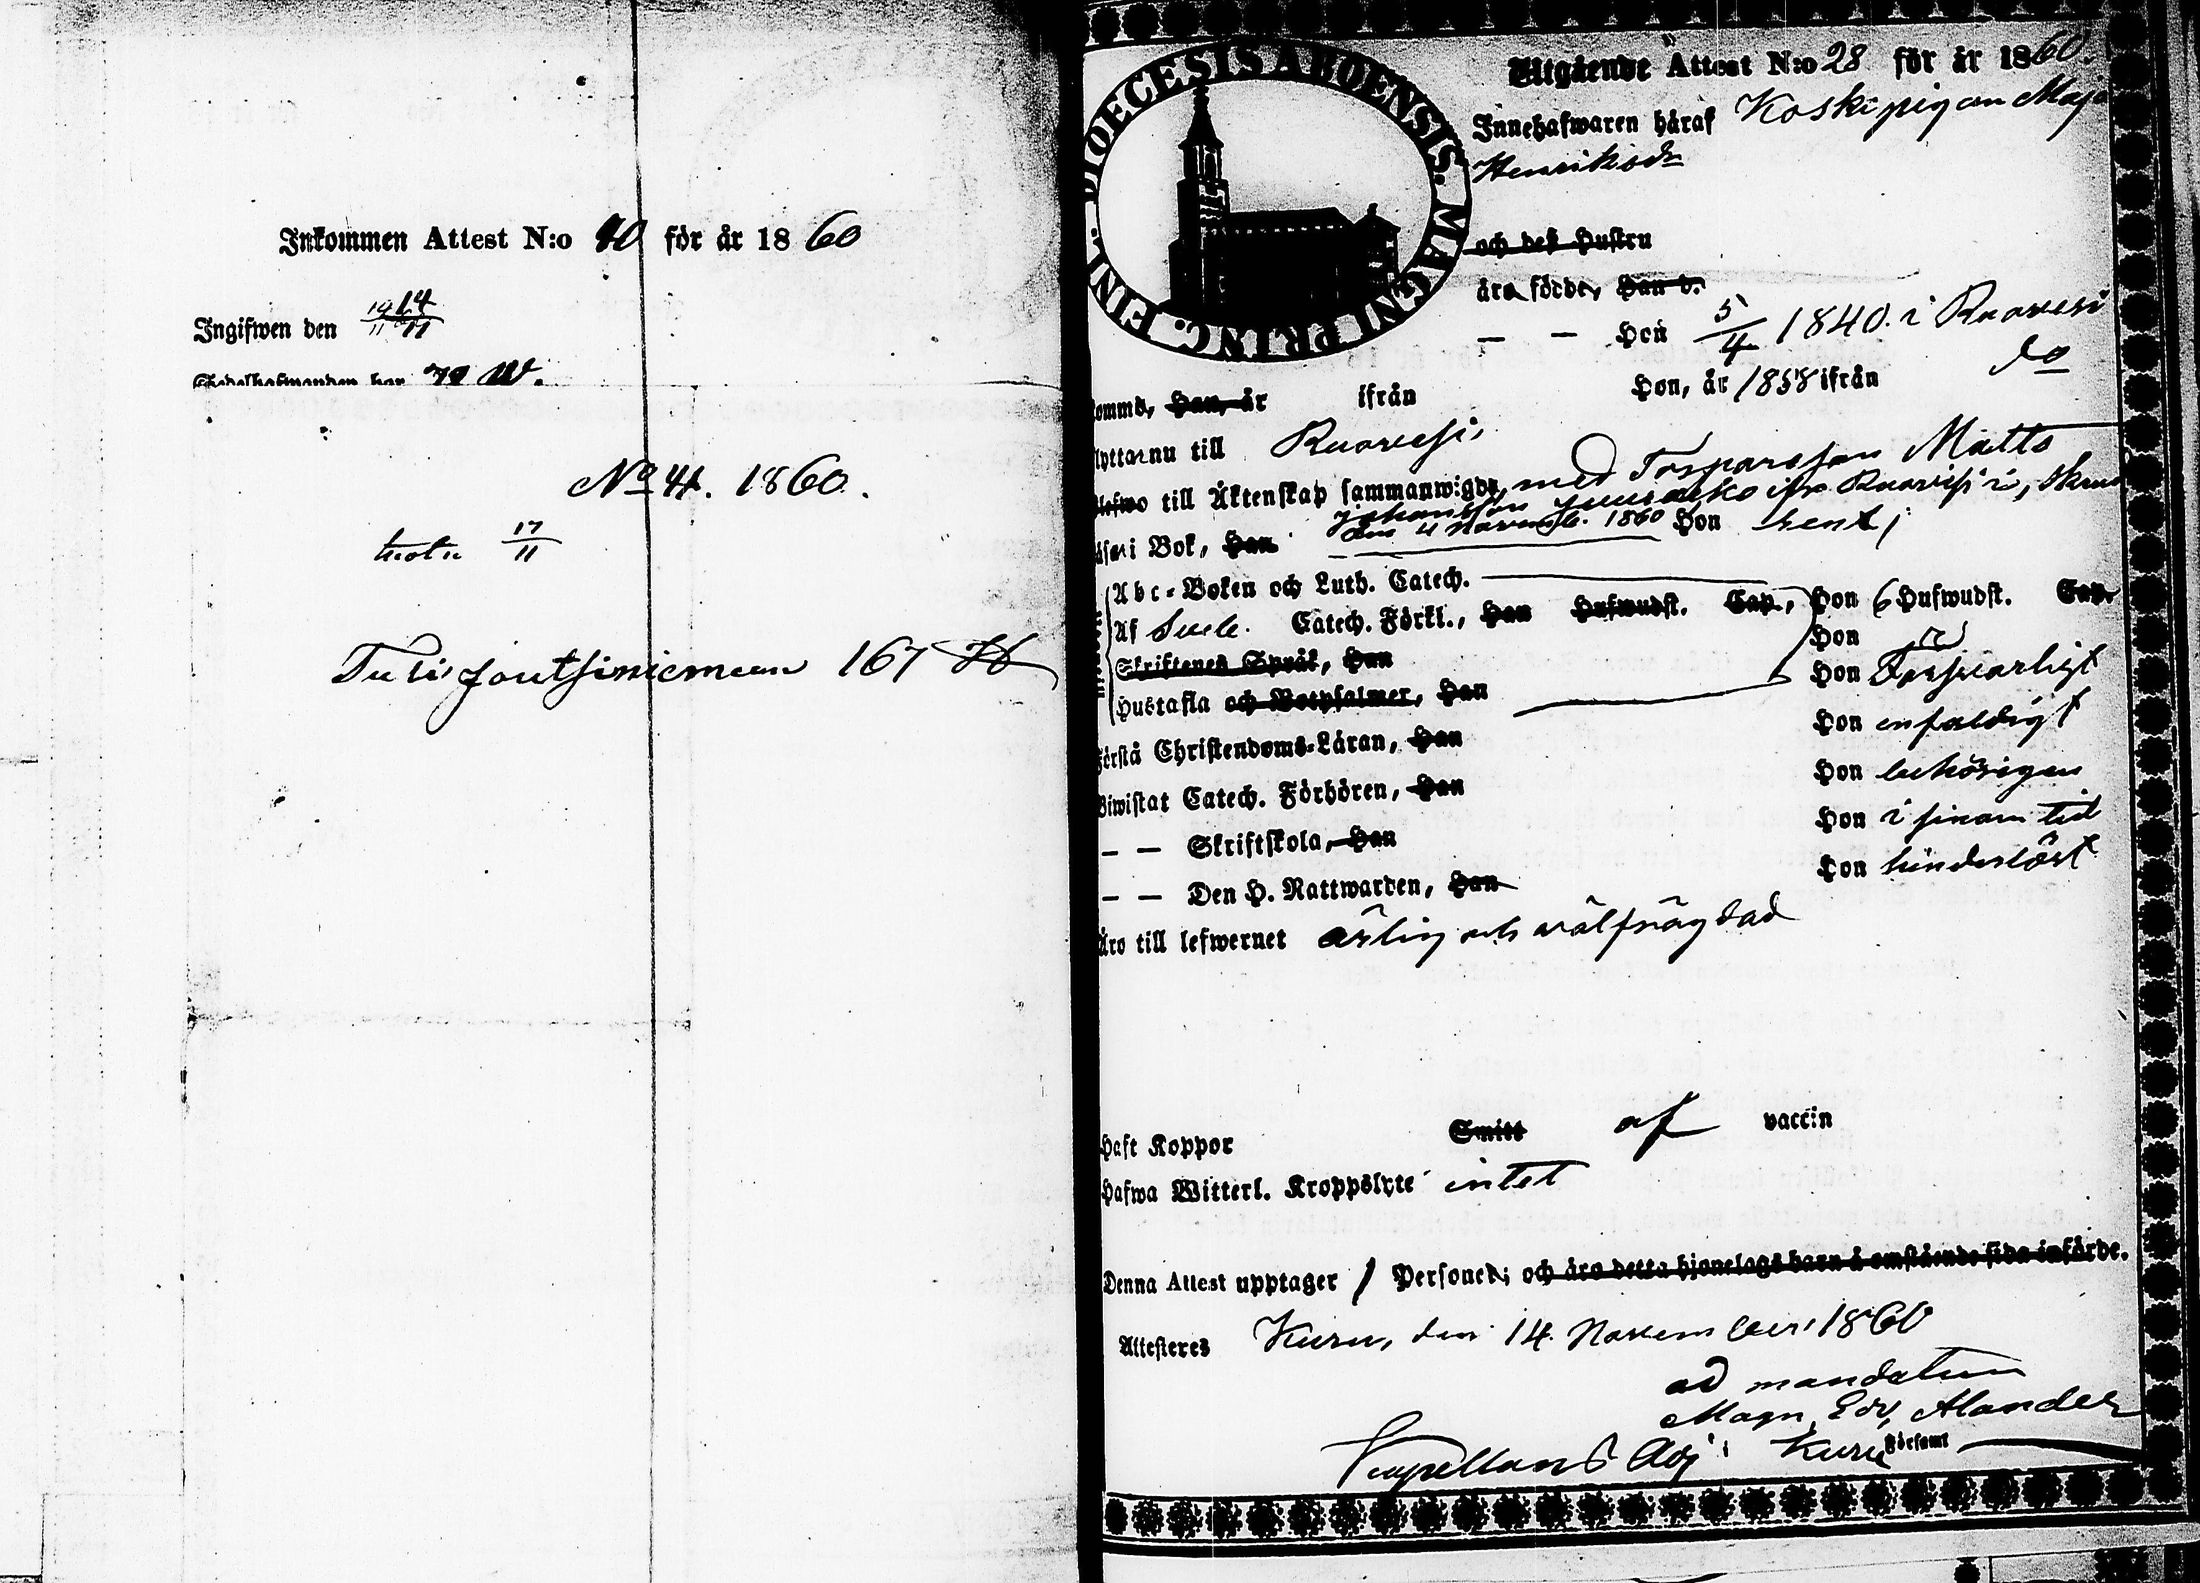 Inkommen Attest N:o 40 för år 1860
Ingifwen den 14/11
har
No 41. 1860.
17/11
167
DIOECESIS ABOENSIS. MAGNI PRINC. FINL.
Utgående Attest N:o 28 för år 1860.
Innehafwaren häraf Koski pigan Maja
Henriksdr
och deß Hustru
äro födde, Han d.
— — Hon 5/4 1840. i Ruovesi
komma, Han, år ifrån Hon, år 1858 ifrån do
flytta nu till Ruovesi,
till Äktenskap sammanwigde, med Torparesson Matts
Johansson ifr. Ruovesi
den 11 Novemb. 1860
i Bok, Han Hon rent;
Abc-Boken och Luth. Catech.
Af Sveb. Catech. Förkl., Han Hufwudst. Cap., Hon 6 Hufwudst. Cap.
Skriftenes Språk, Han Hon
Hustafla och Botpsalmer, Han Hon
Förstå Christendoms-Läran, Han Hon enfaldigt
Biwistat Catech. Förhören, Han Hon behörigen
— — Skriftskola, Han Hon i sinom tid
— — Den H. Nattwarden, Han Hon hinderlöst
Äro till lefwernet ärlig och välfrägdad
Haft Koppor Smitt af vaccin
Hafwa Witterl. Kroppslyte intet
Denna Attest upptager 1 Personer; och äro detta hjonelags barn å omstående sida införde.
Attesteres Kuru, den 14 November 1860
ad mandatum
Magn. Edv. Alander
Capellans Adj. i Kuru Församl